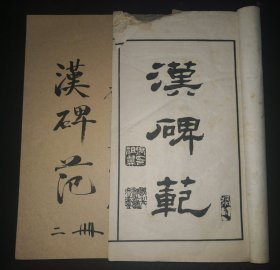 漢碑范
二冊
漢碑範